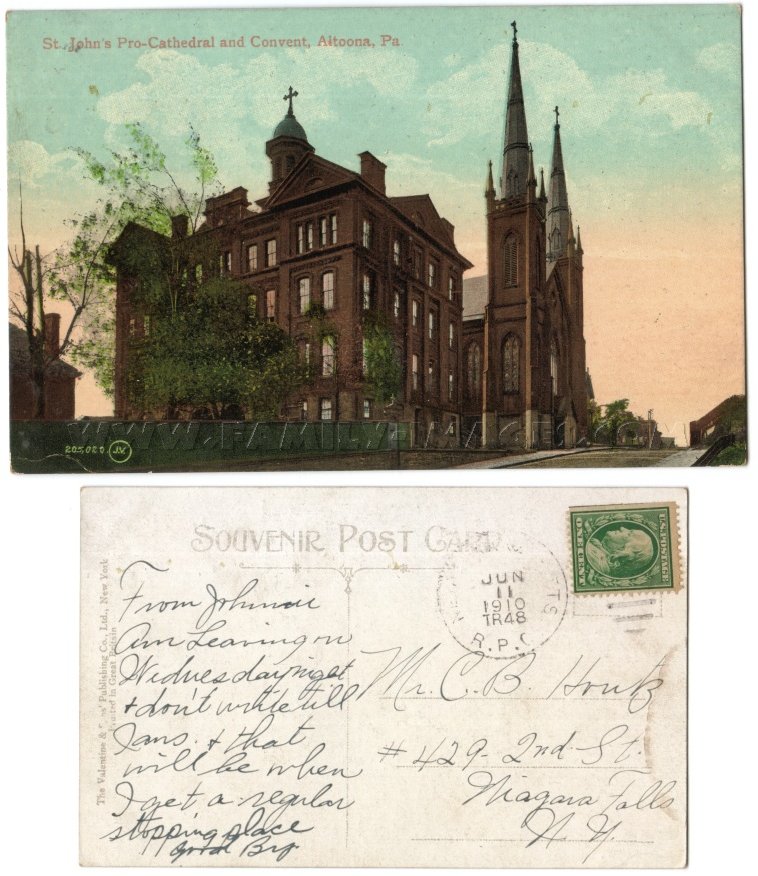 St. John's Pro-Cathedral and Convent, Altoona, Pa.
205,020. J.V.
WWW.FAMILY-IMAGES.CO
SOUVENIR POST CARD
The Valentine & Sons' Publishing Co., Ltd., New York
Printed in Great Britain
JUN
11
1910
TR48
R.P.O
From Johnnie
Am Leaving on
Wednesday niget
& don't write till
I ans. & that
will be when
I get a regular
stopping place
good By
Mr. C. B. Houk
# 429- 2nd St.
Niagara Falls
N. Y.